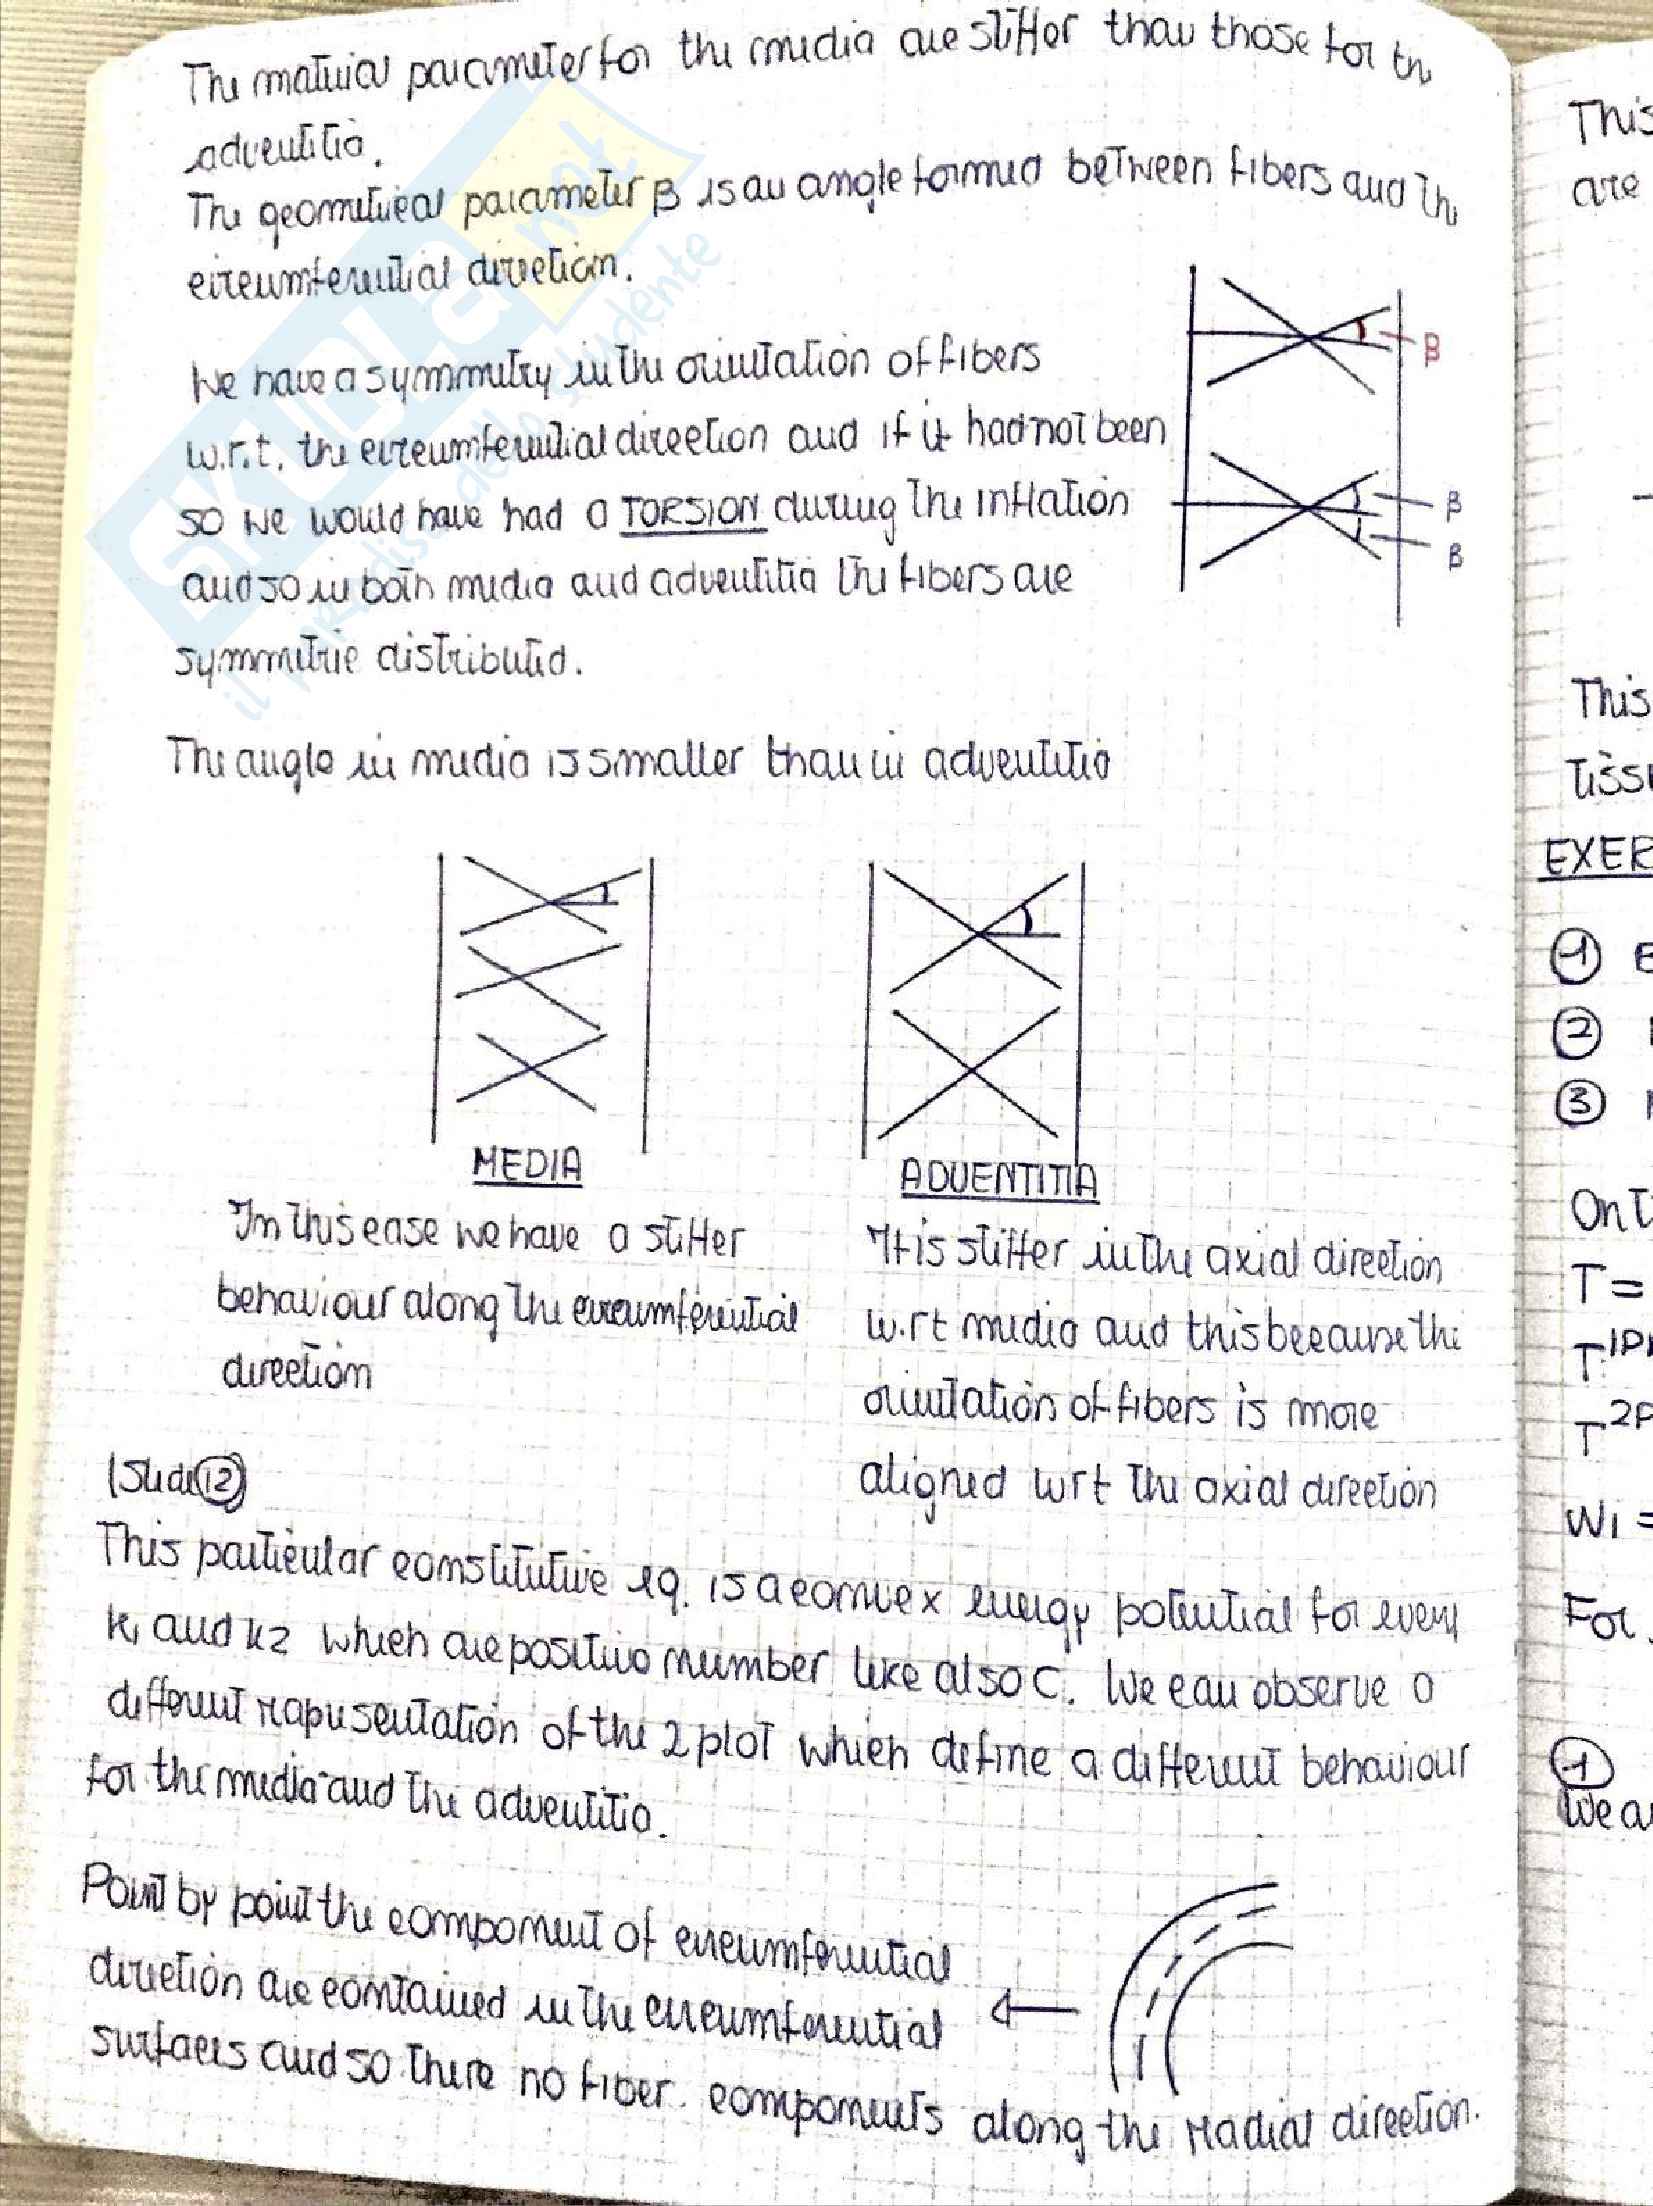 The material parameter for the media are stiffer than those for the
adventitia.
The geometrical parameter β is an angle formed between fibers and the
circumferential direction.
We have a symmetry in the orientation of fibers
w.r.t. the circumferential direction and if it had not been
so we would have had a TORSION during the inflation
and so in both media and adventitia the fibers are
symmetric distributed.
β
β
β
The angle in media is smaller than in adventitia
MEDIA
In this case we have a stiffer
behaviour along the circumferential
direction
ADVENTITIA
It is stiffer in the axial direction
w.r.t media and this because the
orientation of fibers is more
aligned wrt the axial direction
(Slide 12)
This particular constitutive eq. is a convex energy potential for every
K1 and K2 which are positive number like also C. We can observe a
different rapresentation of the 2 plot which define a different behaviour
for the media and the adventitia.
Point by point the component of circumferential
direction are contained in the circumferential
surfaces and so there no fiber components along the radial direction.
This
are
This
EXER
1
2
3
T =
W1 =
For
1
We a
SKUOLA.not
il paradiso dello studente